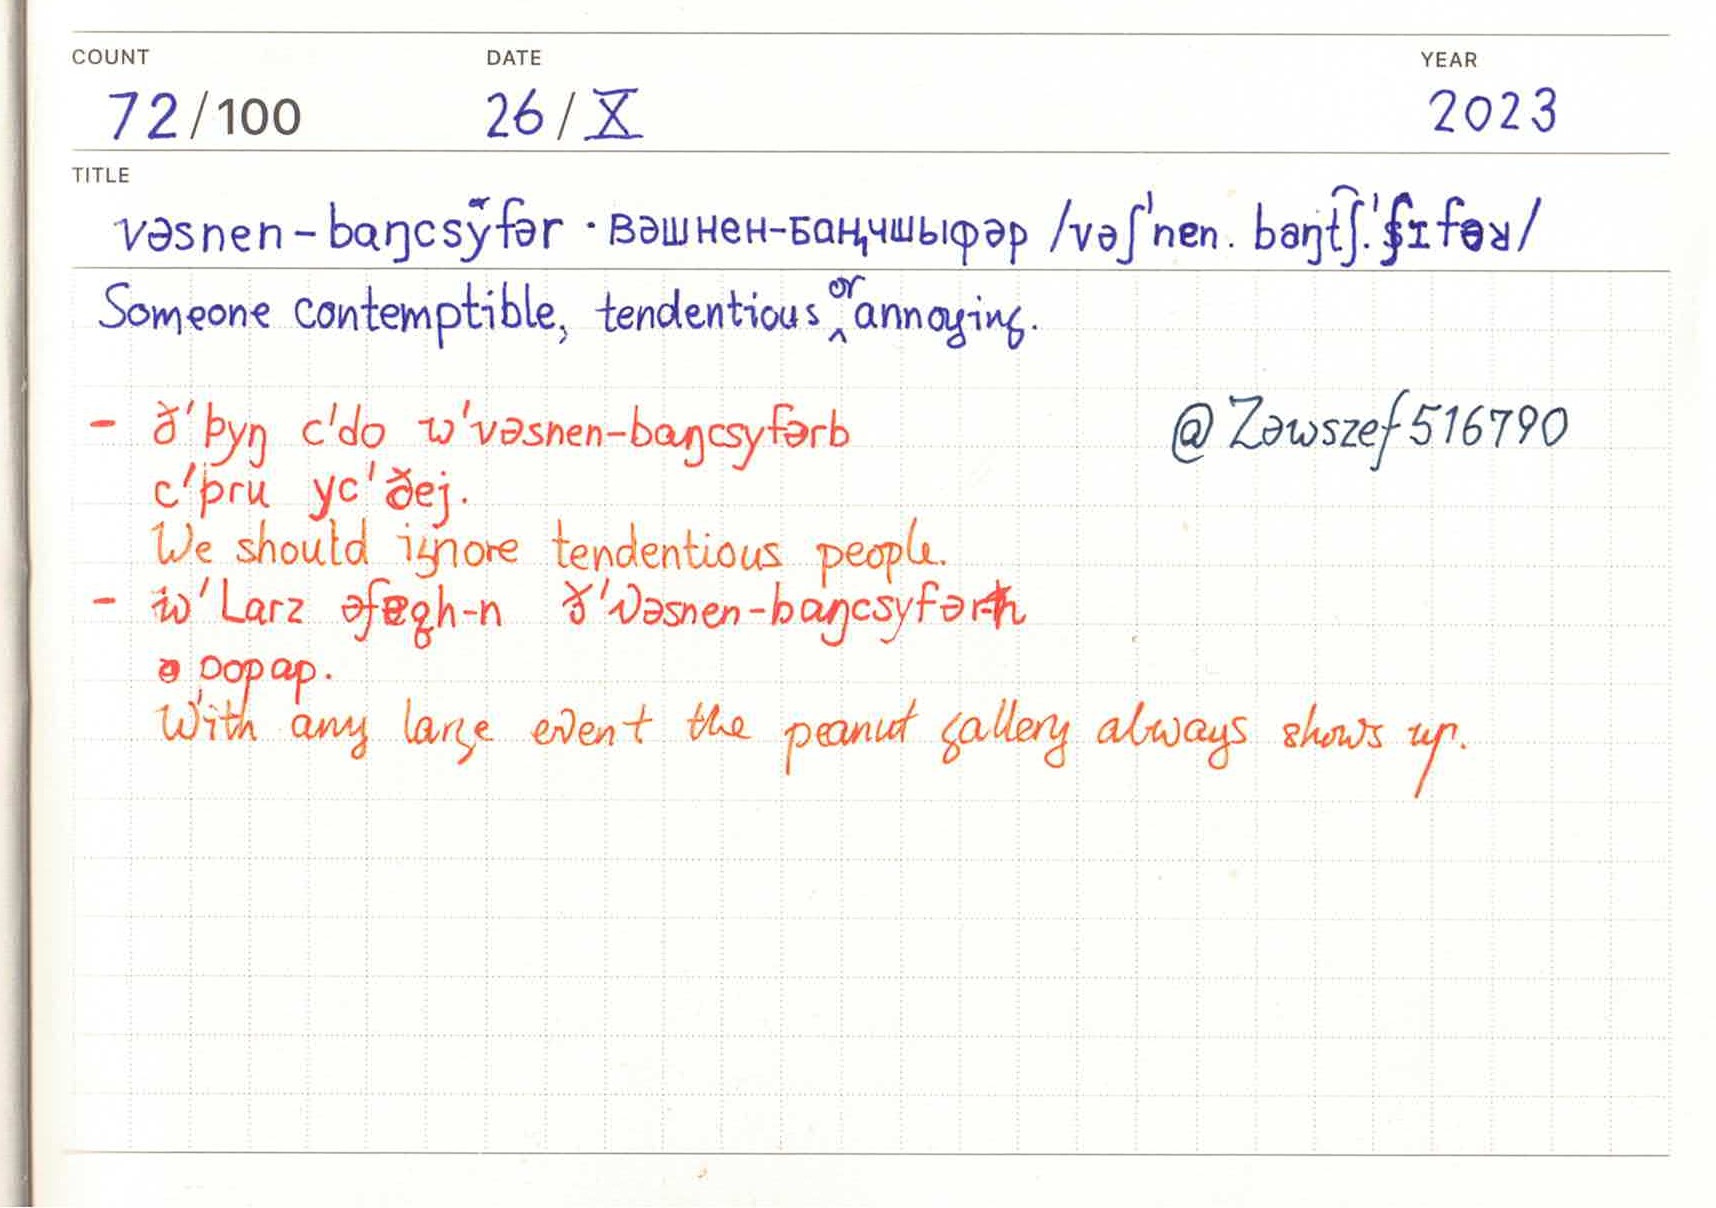 COUNT DATE YEAR
72/100 26/X 2023
TITLE
vəsnen-baŋcsy̌fər · вәшнен-баңчшыфәр /vəʃˈnen. baŋt͡ʃ.ˈʃɪfəʁ/
Someone contemptible, tendentious or annoying.
- ð'þyŋ c'do w'vəsnen-baŋcsyfərb @Zəwszef516790
c'þru yc'ðej.
We should ignore tendentious people.
- w'Larz əfegh-n ð'vəsnen-baŋcsyfərh
ə popap.
With any large event the peanut gallery always shows up.